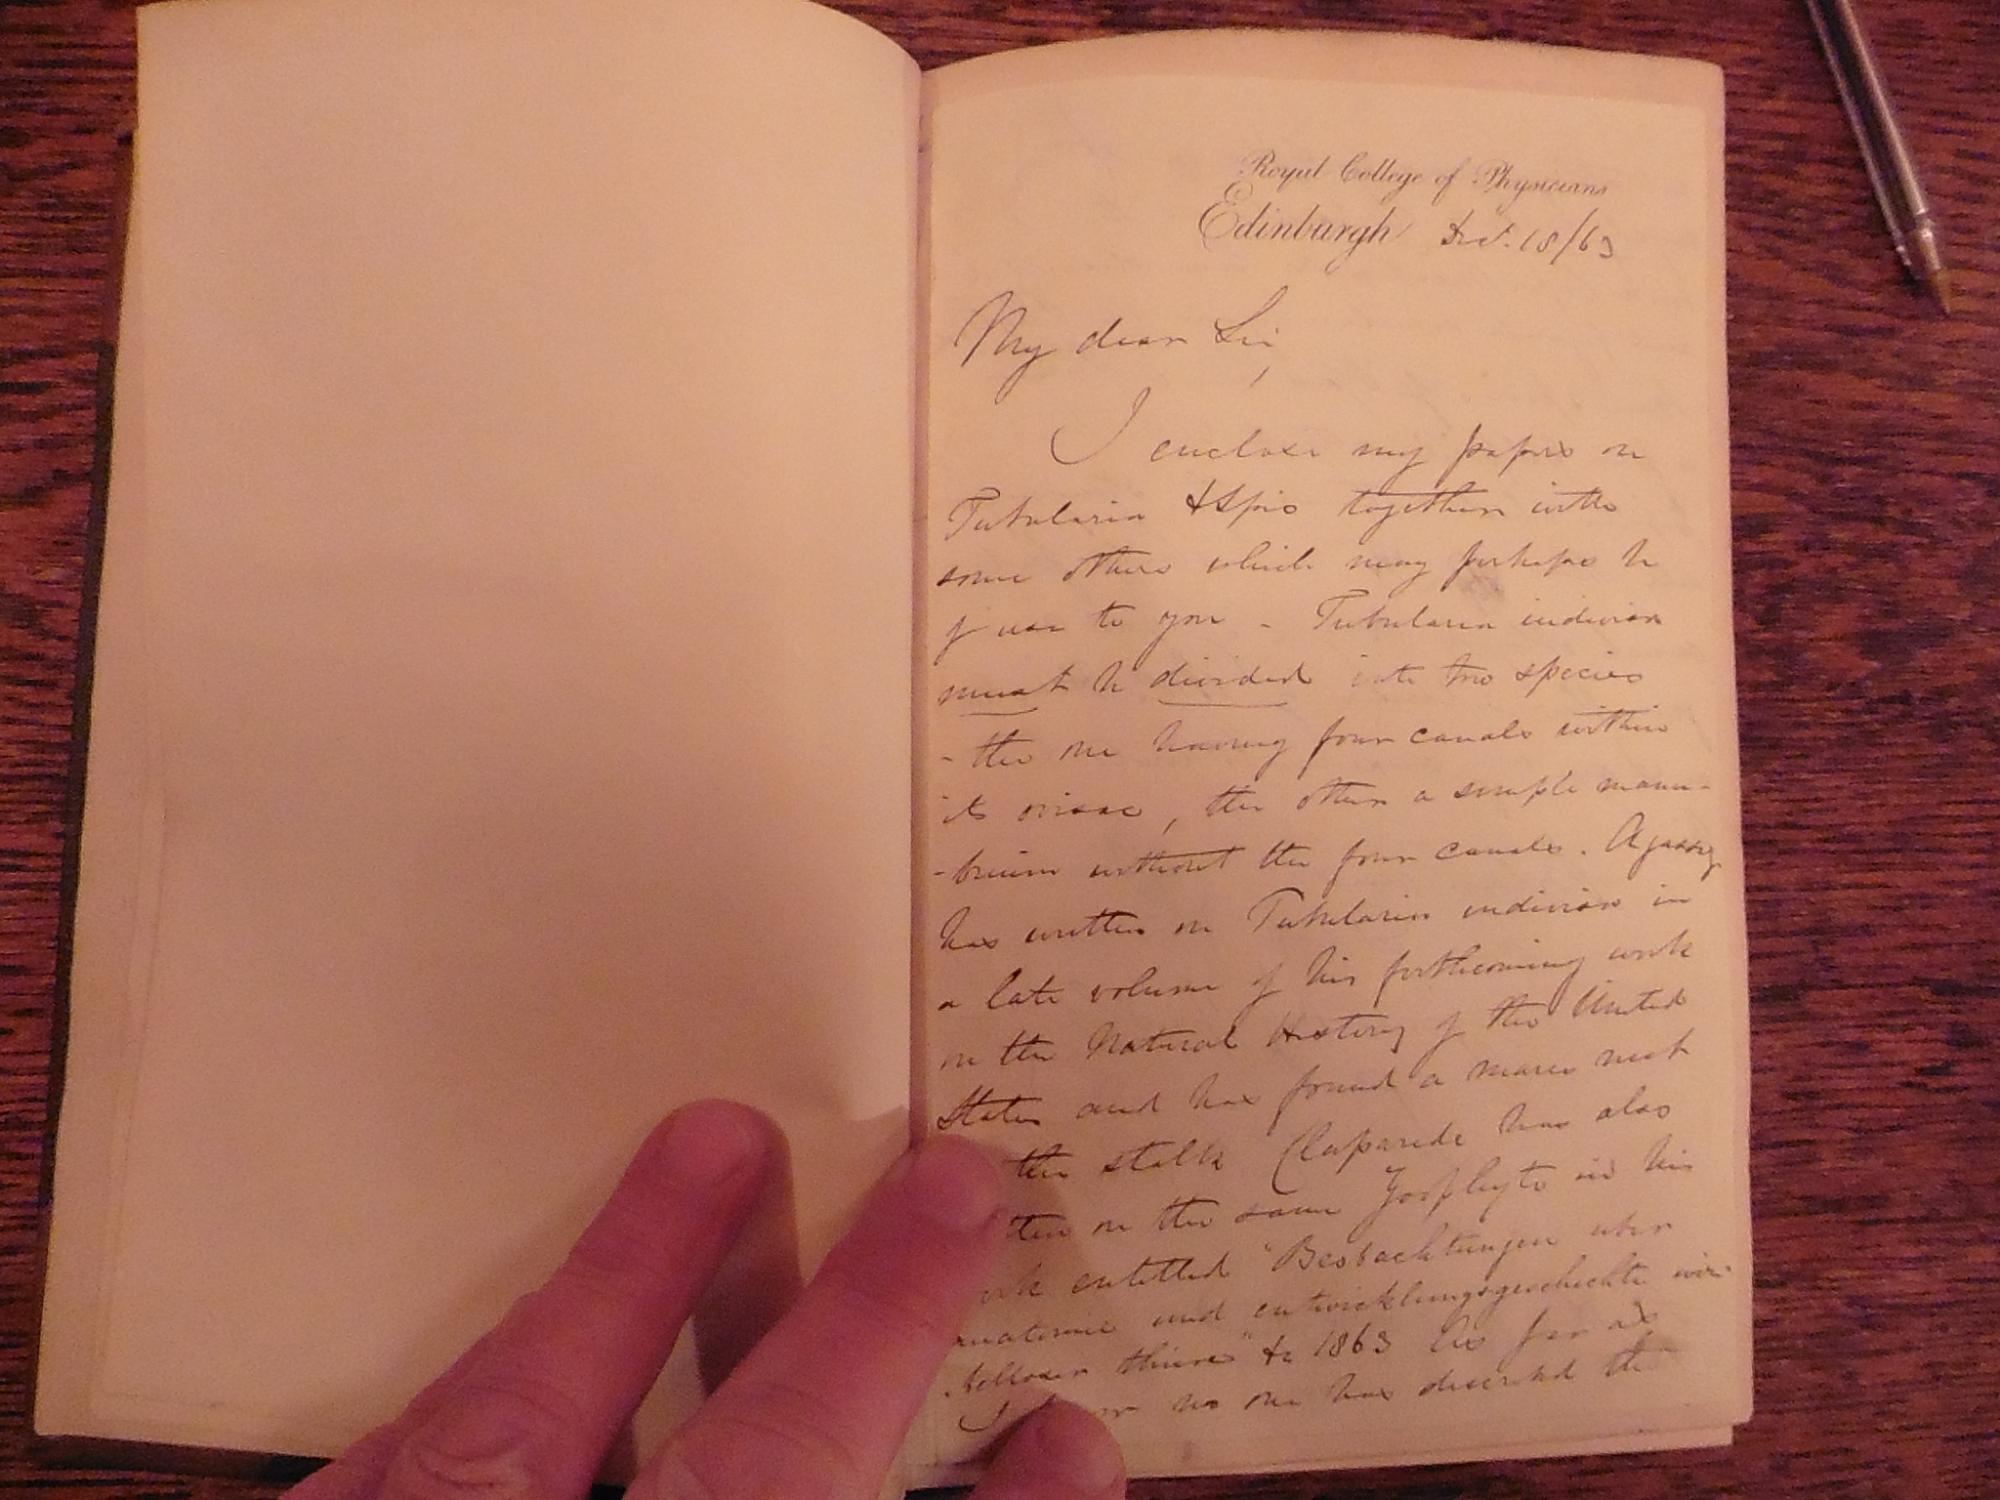 Royal College of Physicians
Edinburgh Dec. 18/63
My dear Sir,
I enclose my papers on
Tubularia & Spio together with
some others which may perhaps be
of use to you - Tubularia indivisa
must be divided into two species
- the one having four canals within
its ovisac, the other a simple manu-
-brium without the four canals. Agassiz
has written on Tubularia indivisa in
a late volume of his forthcoming work
on the Natural History of the United
States and has found a mares nest
the stalk Claparede has also
on the same Zoophyte in his
entitled "Beobachtungen uber
und entwicklungsgeschichte wir-
thiere" &c 1863 As far as
I no one has described the